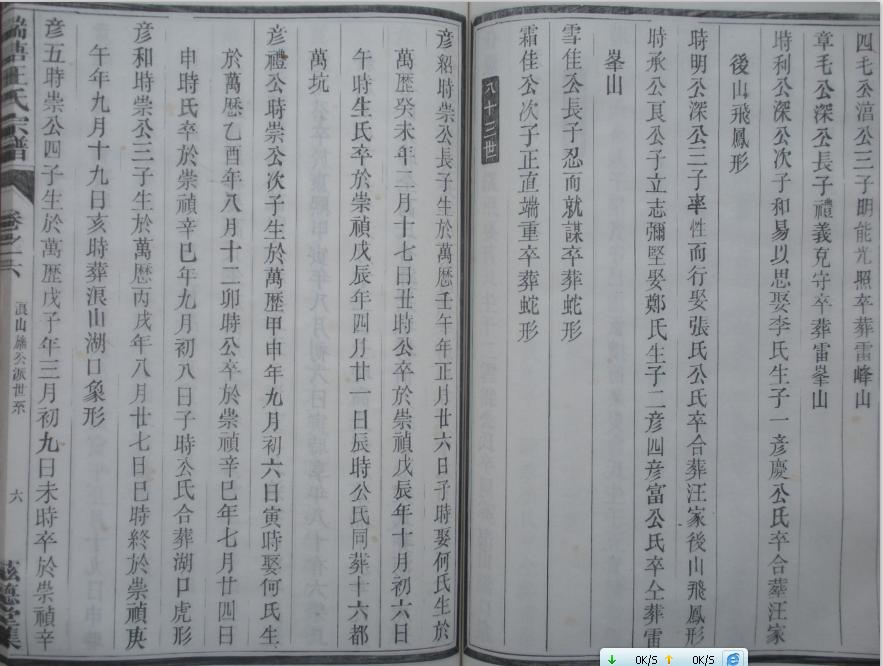 四毛公㵆公三子明能光照卒葬雷峰山
章毛公深公長子禮義克守卒葬雷峯山
時利公深公次子和易以思娶李氏生子一彦慶公氏卒合葬汪家
後山飛鳳形
時明公深公三子率性而行娶張氏公氏卒合葬汪家後山飛鳳形
時承公良公子立志彌堅娶鄭氏生子二彦四彦富公氏卒仝葬雷
峯山
雪佳公長子忍而就謀卒葬蛇形
霜佳公次子正直端重卒葬蛇形
八十三世
彦紹時崇公長子生於萬歷壬午年正月廿六日子時娶何氏生於
萬歷癸未年二月十七日丑時公卒於崇禎戊辰年十月初六日
午時生氏卒於崇禎戊辰年四月廿一日辰時公氏同葬十六都
萬坑
彦禮公時崇公次子生於萬歷甲申年九月初六日寅時娶何氏生
於萬歷乙酉年八月十二卯時公卒於崇禎辛巳年七月廿四日
申時氏卒於崇禎辛巳年九月初八日子時公氏合葬湖口虎形
彦和時崇公三子生於萬歷丙戌年八月廿七日巳時終於崇禎庚
午年九月十九日亥時葬滾山湖口象形
彦五時崇公四子生於萬歷戊子年三月初九日未時卒於崇禎辛
瑞塘王氏宗譜
卷之六
山 公派世系
六
德堂集
0K/S 0K/S